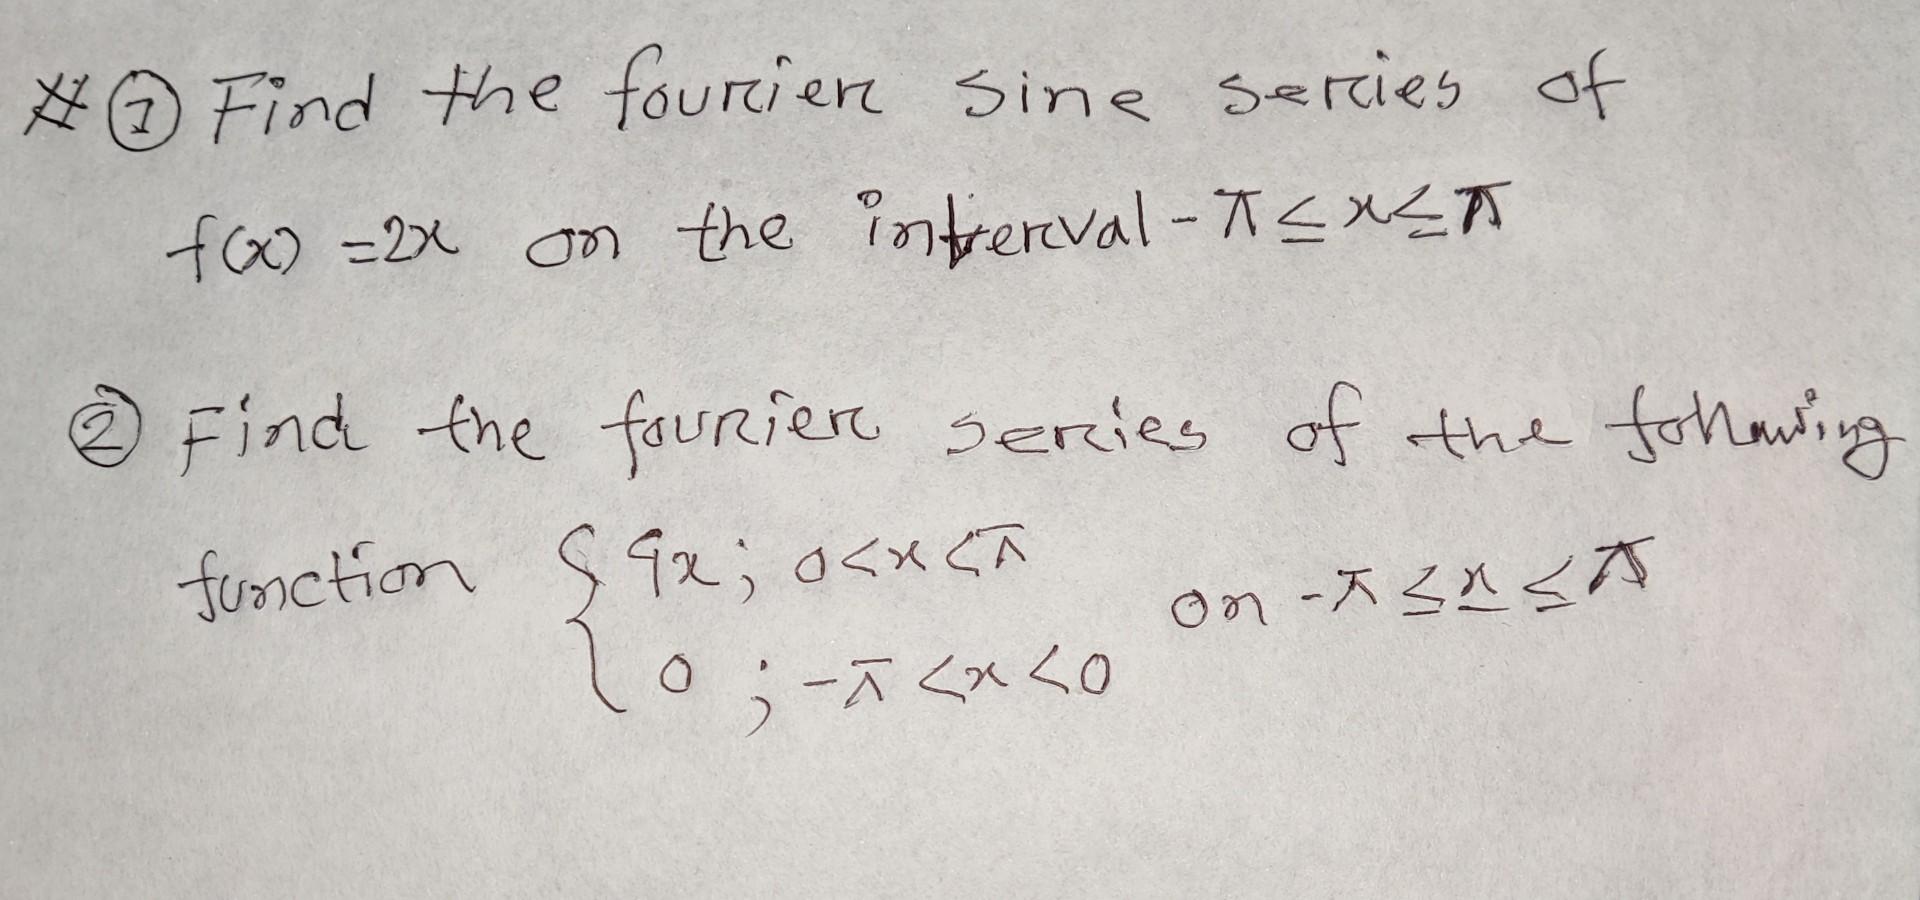 # ① Find the fourier sine series of
f(x) = 2x on the interval - π ≤ x ≤ π
② Find the fourier series of the following
function { 9x ; 0 < x < π
0 ; -π < x < 0 on -π ≤ x ≤ π